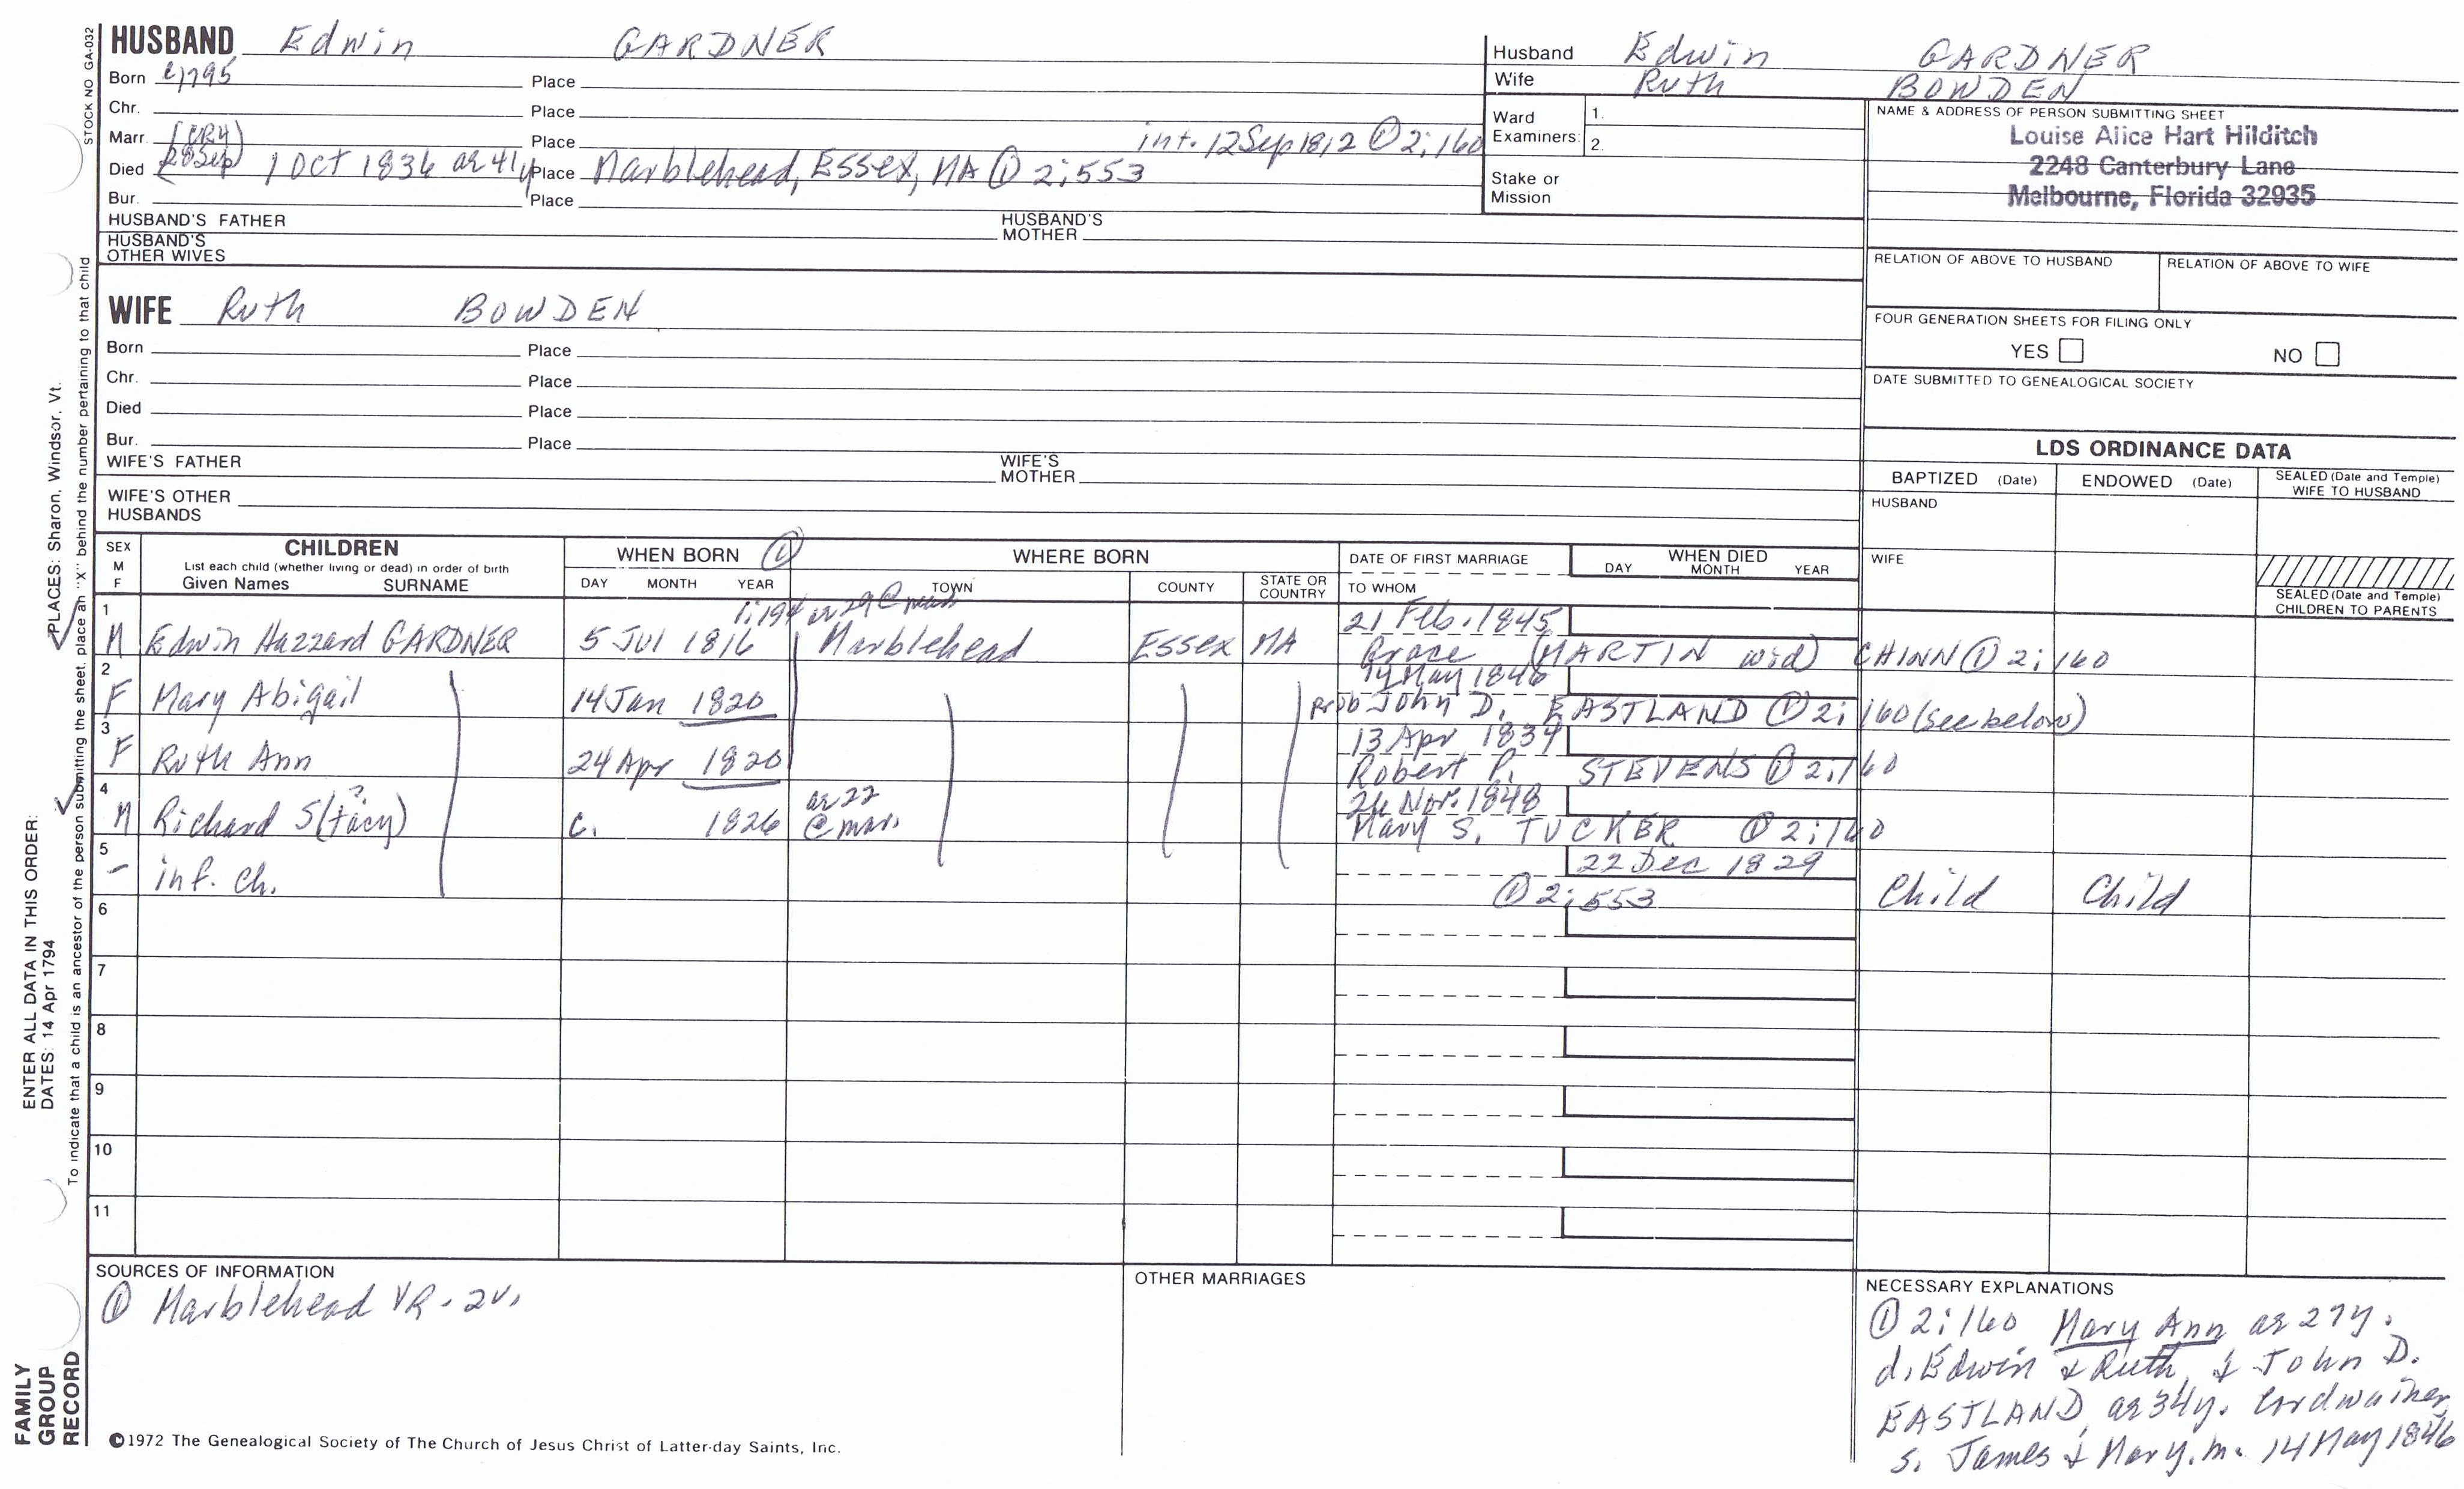 HUSBAND Edwin GARDNER
Born c1795 Place
Chr. Place
Marr. Place int. 12 Sep 1812 ① 2:160
(CR4)
Died (28 Sep) 1 Oct 1836 ae 41y Place Marblehead, Essex, MA ① 2:553
Bur. Place
HUSBAND'S FATHER HUSBAND'S MOTHER
HUSBAND'S OTHER WIVES
Husband Edwin GARDNER
Wife Ruth BOWDEN
Ward Examiners: 1.
2.
Stake or Mission
NAME & ADDRESS OF PERSON SUBMITTING SHEET
Louise Alice Hart Hilditch
2248 Canterbury Lane
Melbourne, Florida 32935
RELATION OF ABOVE TO HUSBAND RELATION OF ABOVE TO WIFE
FOUR GENERATION SHEETS FOR FILING ONLY
YES NO
DATE SUBMITTED TO GENEALOGICAL SOCIETY
WIFE Ruth BOWDEN
Born Place
Chr. Place
Died Place
Bur. Place
WIFE'S FATHER WIFE'S MOTHER
WIFE'S OTHER HUSBANDS
LDS ORDINANCE DATA
BAPTIZED (Date) ENDOWED (Date) SEALED (Date and Temple) WIFE TO HUSBAND
HUSBAND
WIFE
SEALED (Date and Temple) CHILDREN TO PARENTS
SEX M F
CHILDREN
List each child (whether living or dead) in order of birth
Given Names SURNAME
WHEN BORN ①
DAY MONTH YEAR
WHERE BORN
TOWN COUNTY STATE OR COUNTRY
DATE OF FIRST MARRIAGE
TO WHOM
WHEN DIED
DAY MONTH YEAR
1 1:194 ae 29 @ 21 Feb. 1845
M Edwin Hazzard GARDNER 5 Jul 1816 Marblehead Essex MA Grace (MARTIN wid) CHINN ① 2:160
2 14 May 1846
F Mary Abigail 14 Jan 1820 prob John D. EASTLAND ① 2:160 (see below)
3 13 Apr 1834
F Ruth Ann 24 Apr 1820 Robert P. STEVENS ① 2:160
4 ? ae 22 26 Nov. 1848
M Richard S(tacy) c. 1826 @ mar. Mary S. TUCKER ① 2:160
5 22 Dec 1829
- inf. ch. ① 2:553 Child Child
6
7
8
9
10
11
SOURCES OF INFORMATION
① Marblehead VR - 2v.
OTHER MARRIAGES
NECESSARY EXPLANATIONS
① 2:160 Mary Ann ae 27y.
d. Edwin & Ruth, & John D.
EASTLAND ae 34y. cordwainer,
s. James & Mary, m. 14 May 1846
©1972 The Genealogical Society of The Church of Jesus Christ of Latter-day Saints, Inc.
STOCK NO GA-032
FAMILY GROUP RECORD
ENTER ALL DATA IN THIS ORDER:
DATES: 14 Apr 1794
PLACES: Sharon, Windsor, Vt.
To indicate that a child is an ancestor of the person submitting the sheet, place an "X" behind the number pertaining to that child